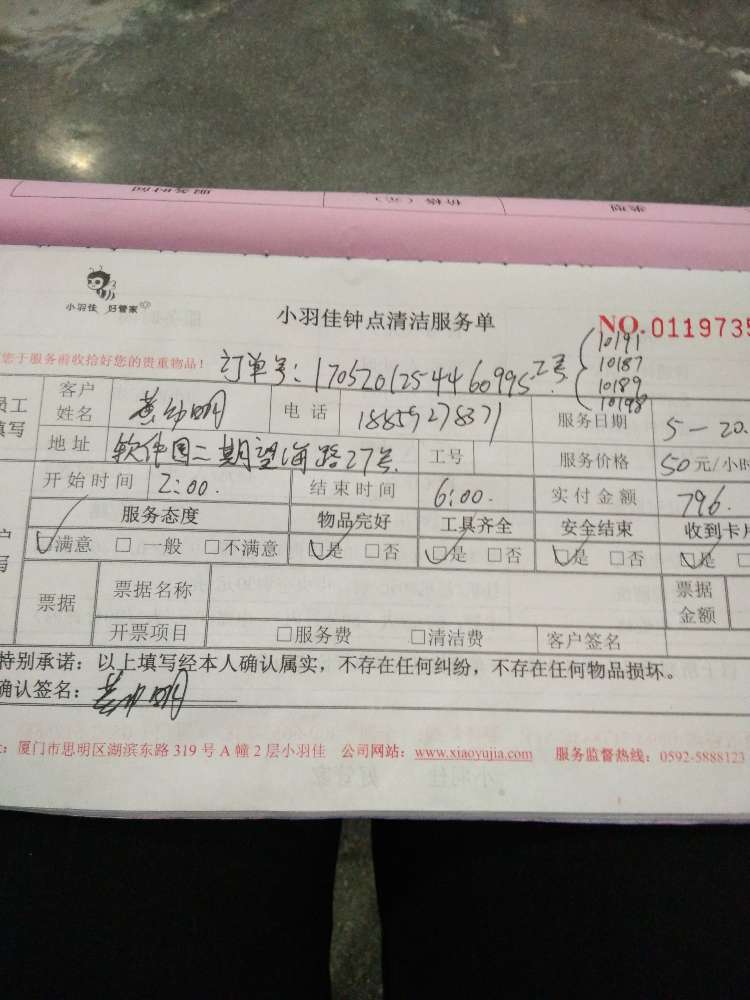 小羽佳 好管家
小羽佳钟点清洁服务单
NO.0119735
您于服务前收拾好您的贵重物品！
订单号：17052012544460995
工号
10191
10187
10189
10198
员工
填写
客户
姓名
电话
18859278371
服务日期
5-20.
地址
软件园二期望海路27号.
工号
服务价格
50元/小时
开始时间
2:00.
结束时间
6:00.
实付金额
796.
服务态度
物品完好
工具齐全
安全结束
收到卡片
满意 □ 一般 □不满意
是 □否
是 □否
是 □否
是 □
票据
票据名称
票据
金额
开票项目
□服务费
□清洁费
客户签名
特别承诺：以上填写经本人确认属实，不存在任何纠纷，不存在任何物品损坏。
确认签名：
：厦门市思明区湖滨东路 319 号 A 幢 2 层小羽佳 公司网站：www.xiaoyujia.com 服务监督热线：0592-5888123